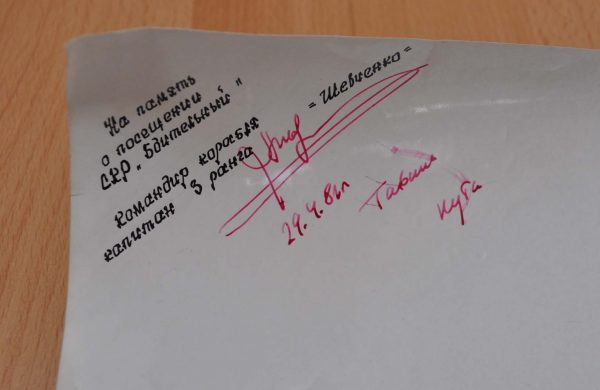 На память
о посещении
СКР „Бдительный"
командир корабля
капитан 3 ранга
= Шевченко =
29.4.81г
Гавана
Куба